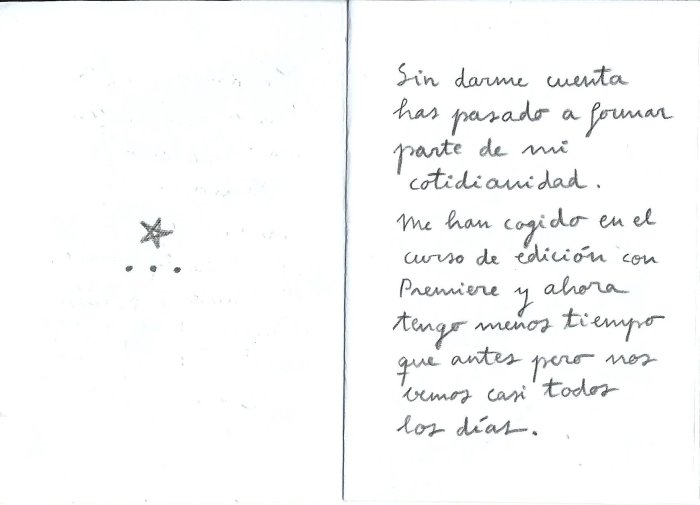 ...
Sin darme cuenta
has pasado a formar
parte de mi
cotidianidad.
Me han cogido en el
curso de edición con
Premiere y ahora
tengo menos tiempo
que antes pero nos
vemos casi todos
los días.